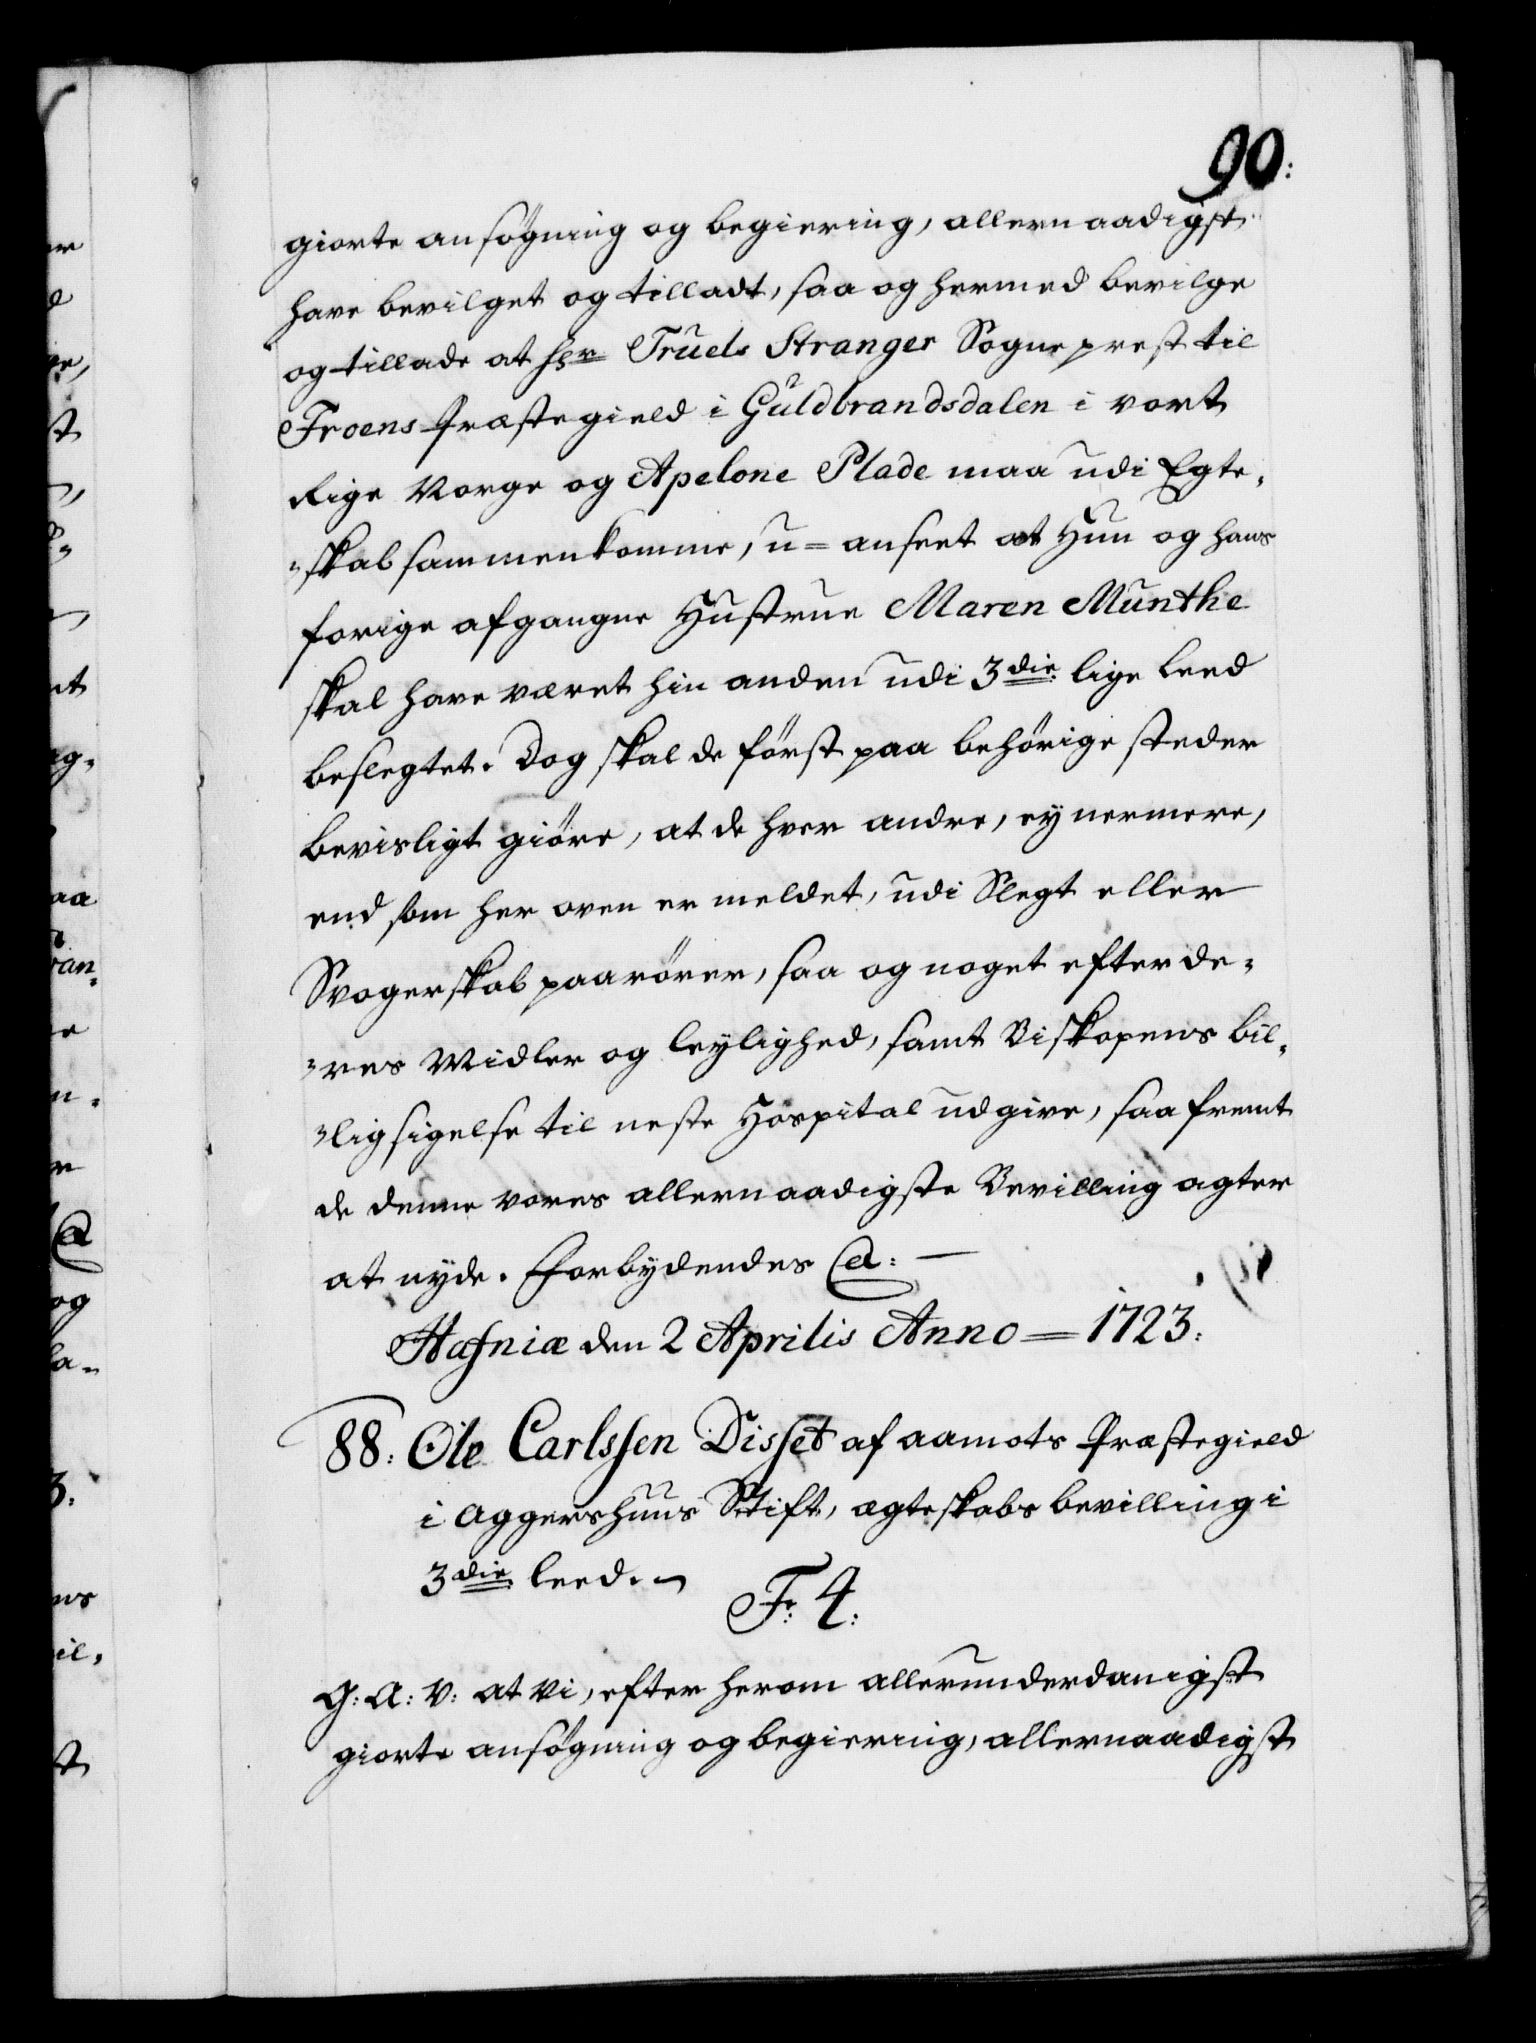 90:
giorte ansögning og begiering, allernaadigst
have bevilget og tilladt, saa og hermed bevilge
og tillade at hr Truels Stranger Sogneprest til
Froens Præstegield i Guldbrandsdalen i vort
Rige Norge og Apelone Plade maa udi Egte-
-skab sammenkomme, u=anseet at Hun og hans
forige afgangne Hustrue Maren Munthe
skal have været hin anden udi 3die lige Leed
beslegtet. Dog skal de först paa behörige steder
bevisligt giöre, at de hver andre, ey nermere,
end som her oven er meldet, udi Slegt eller
Svogerskab paarörer, saa og noget efter de-
-res Midler og leylighed, samt Biskopens bil-
-lig sigelse til neste Hospital udgive, saa fremt
de denne vores allernaadigste Bevilling agter
at nyde. Forbydendes &:
Hafniæ den 2 Aprilis Anno = 1723:
88: Ole Carlssen Disset af aamots Præstegield
i Aggershuus Stift, ægteskabs bevilling i
3die leed.
Fr: 4:
G: A: V: at Vi, efter herom allerunderdanigst
giorte ansögning og begiering, allernaadigst